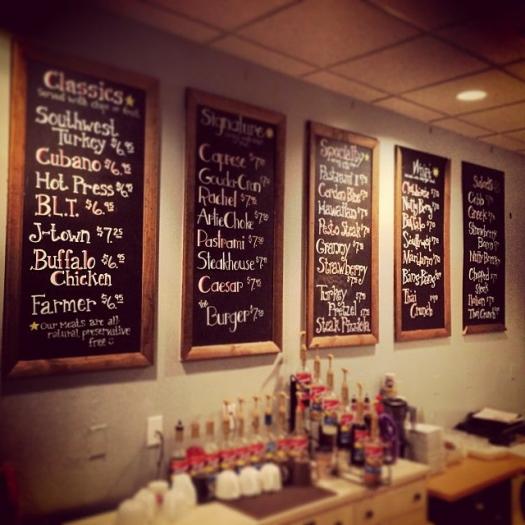 Classics
Served with chips or fruit
Southwest
Turkey $6.95
Cubano $6.95
Hot Press $6.95
B.L.T. $6.95
J-town $7.25
Buffalo $6.95
Chicken
Farmer $6.95
Our meats are all
natural, preservative
free
Signature
Caprese $7.50
Gouda-Cran $7.50
Rachel $7.50
Artie Choke $7.50
Pastrami $7.50
Steakhouse $7.50
Caesar $7.50
the Burger $7.50
Specialty
Pastrami
Cordon Bleu
Hawaiian
Pesto Steak
Granny
Strawberry
Turkey
Pretzel
Steak Pinziola
Wraps
Nutty Berry
Buffalo
Southwest
Mandarin
Bang-Bang
Thai
Crunch
Salads
Cobb
Greek
Strawberry
Nutty Berry
Chopped
Italian
Thai Crunch